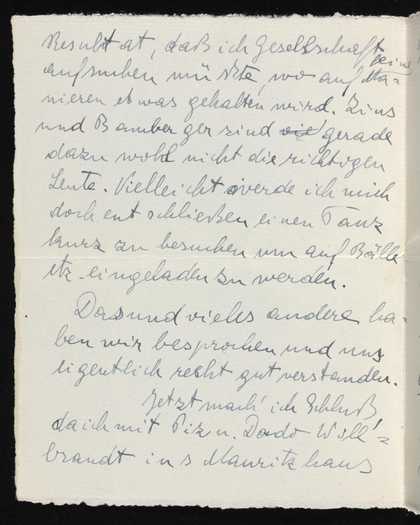 Resultat, daß ich Gesellschaft
aufsuchen müßte, wo auf Ma-
nieren etwas gehalten wird. Zins
und Bamberger sind gerade
dazu wohl nicht die richtigen
Leute. Vielleicht werde ich mich
doch entschließen einen Tanz
kurz zu besuchen um auf Bälle
etz. eingeladen zu werden.
Das und vieles andere ha-
ben wir besprochen und uns
eigentlich recht gut verstanden.
Jetzt mach' ich Schluß
da ich mit Piz u. Dodo Will'=
brandt ins Mauritzhaus